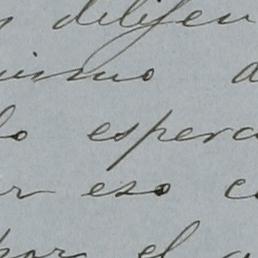 dilijen
ismo d
lo espera
r eso c
por el a